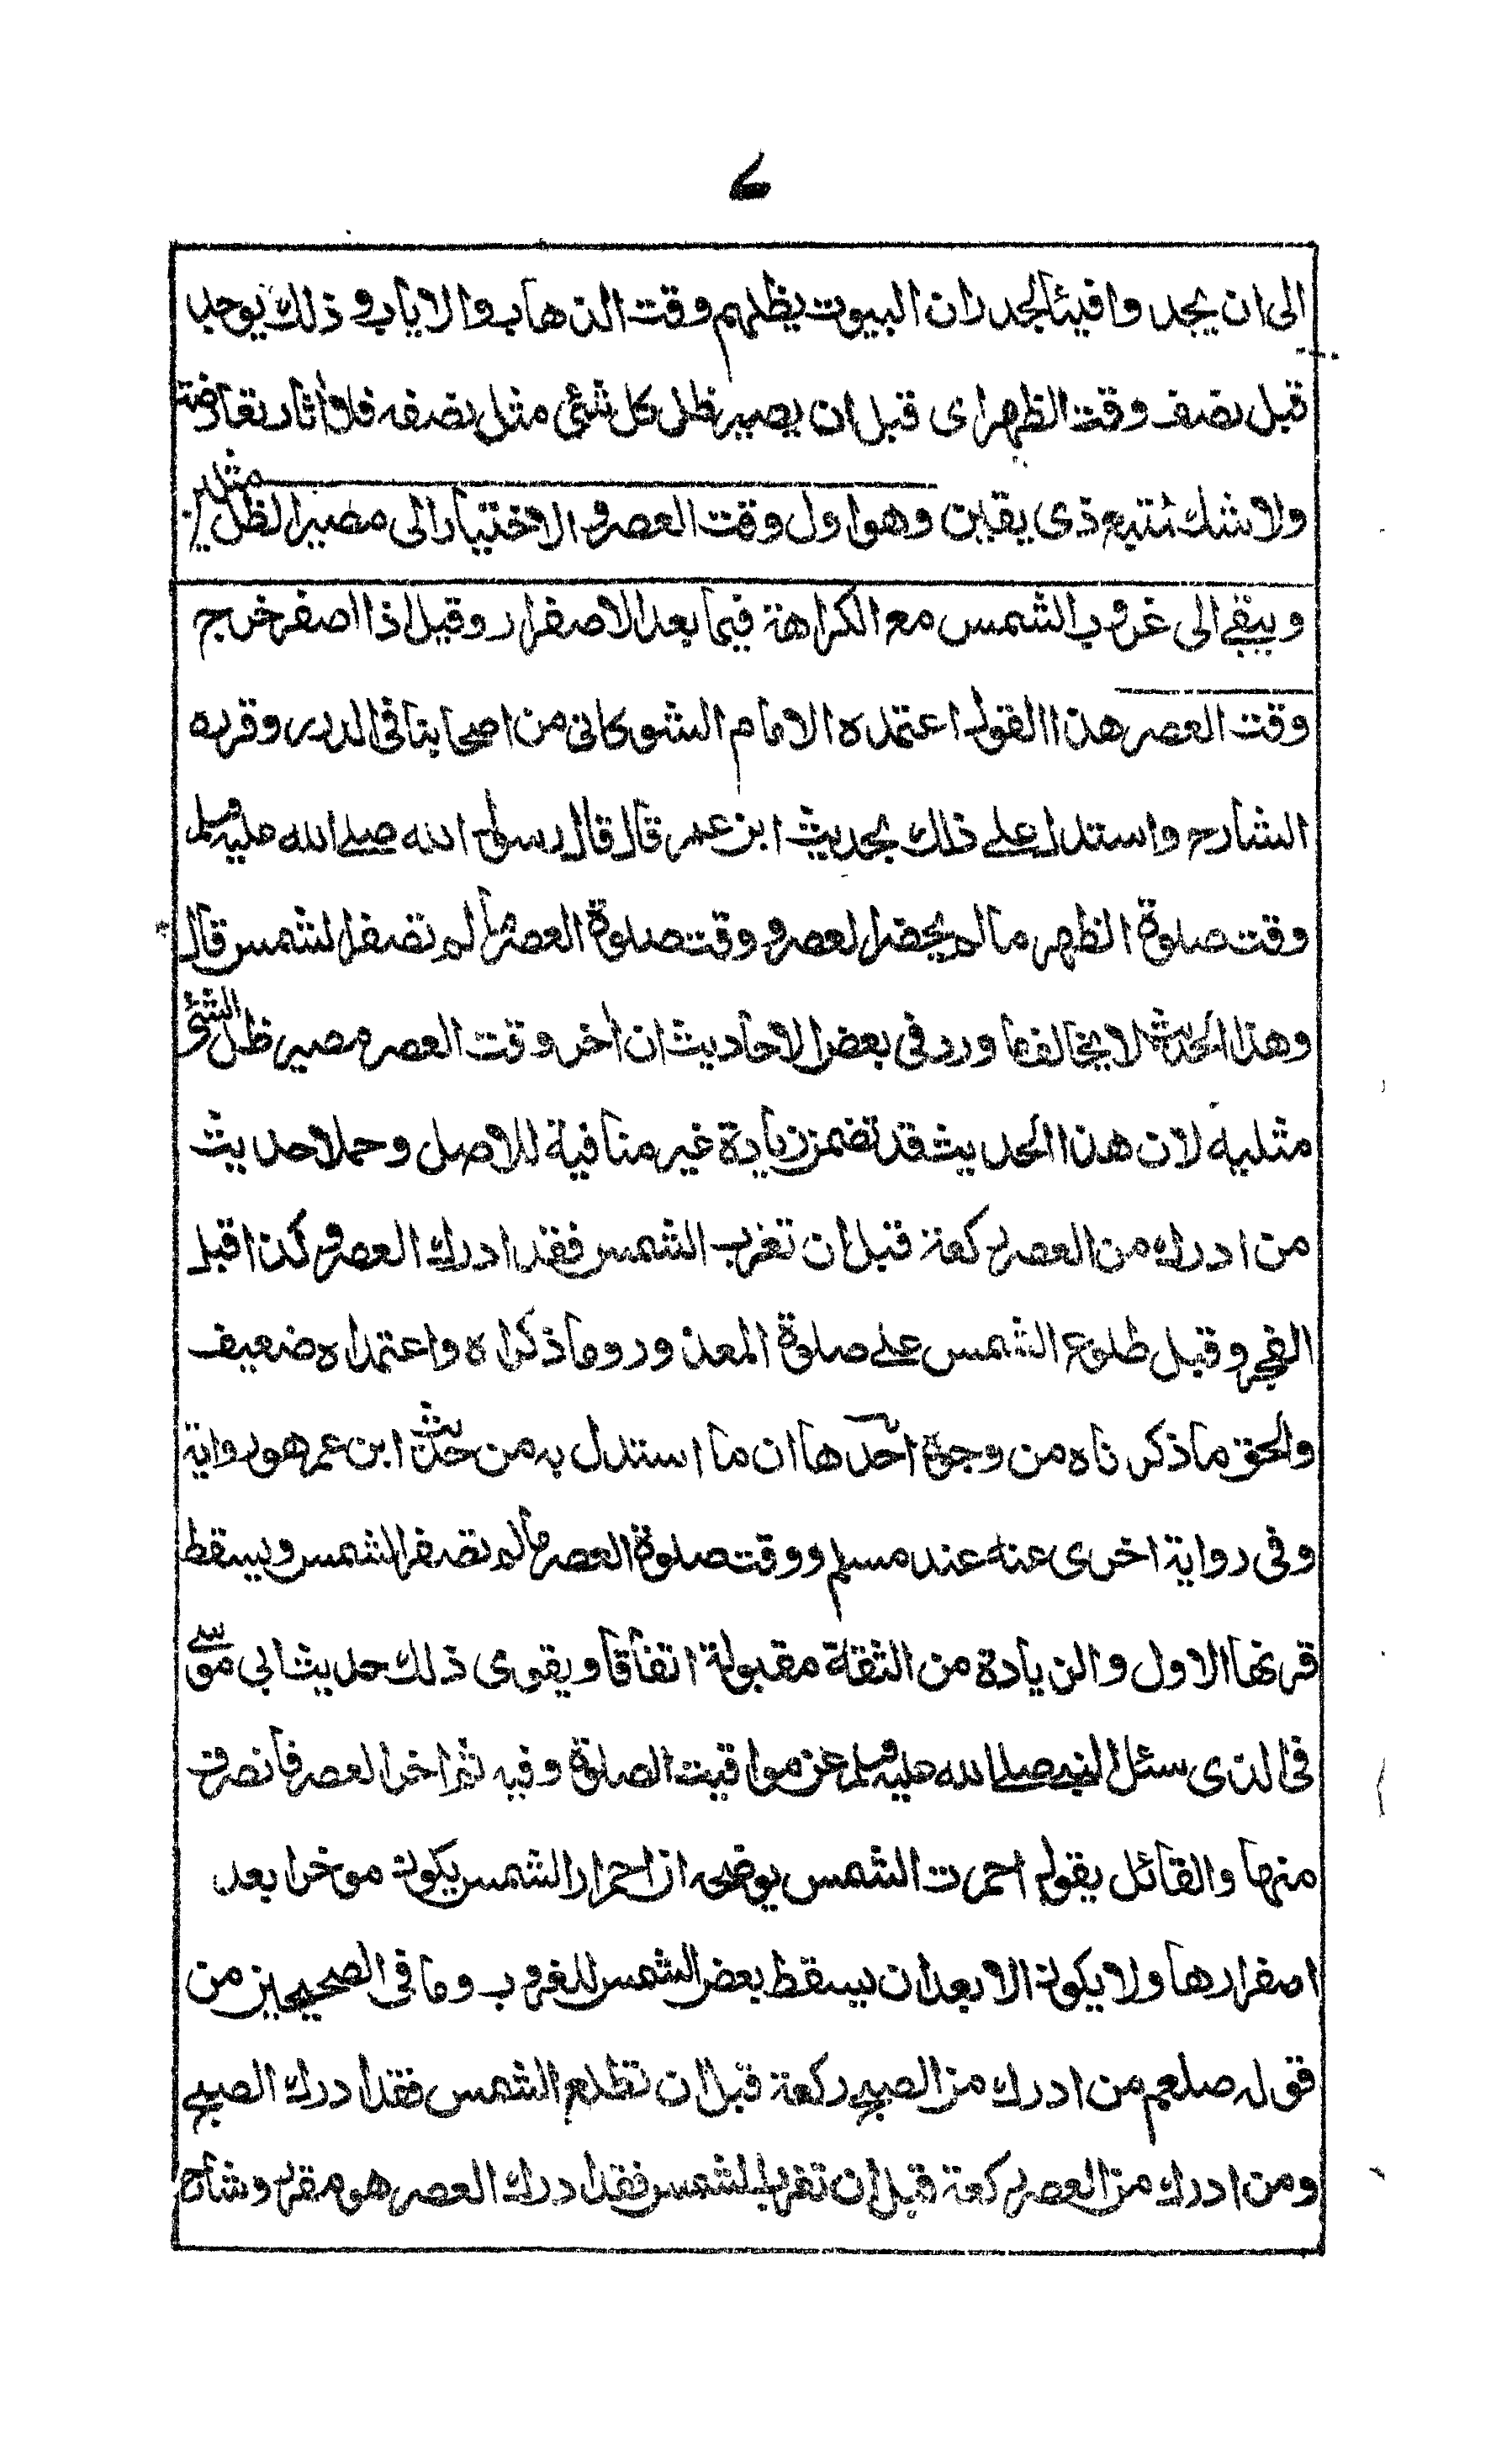 ٧
الى ان يجدوا فيئا لجدران البيوت يظلهم وقت الذهاب والاياب وذلك يوجد
قبل نصف وقت الظهر اى قبل ان يصير ظل كل شئ مثل نصفه فلا اثار تعارضته
ولا شك ذى يقين وهو اول وقت العصر والاختيار الى مصير الظل مثلين
ويبقى الى غروب الشمس مع الكراهة فيما بعد الاصفرار وقيل اذا اصفر خرج
وقت العصر هذا القول اعتمده الامام الشوكانى من اصحابنا فى الدرر وقرره
الشارح واستدل على ذلك بحديث ابن عمر قال قال رسول الله صلى الله عليه وسلم
وقت صلوة الظهر ما لم يحضر العصر ووقت صلوة العصر ما لم تصفر الشمس قال
وهذا الحديث لا يخالف ما ورد فى بعض الاحاديث ان أخر وقت العصر مصير ظل الشئ
مثليه لان هذا الحديث قد تضمن زيادة غير منافية للاصل وحملا حديث
من ادرك من العصر ركعة قبل ان تغرب الشمس فقد ادرك العصر وكذا قبل
الفجر وقبل طلوع الشمس على صلوة المعذور وما ذكراه واعتمداه ضعيف
والحق ما ذكرناه من وجوه احدها ان ما استدل به من حديث ابن عمر هو رواية
وفى رواية اخرى عنه عند مسلم ووقت صلوة العصر ما لم تصفر الشمس ويسقط
قرنها الاول والزيادة من الثقة مقبولة اتفاقا ويقوى ذلك حديث ابى موسى
فى الذى سئل النبى صلى الله عليه وسلم عن مواقيت الصلوة وفيه ثم اخر العصر فانصرف
منها والقائل يقول احمرت الشمس يوضحه ان احمرار الشمس يكون موخرا بعد
اصفرارها ولا يكون الا بعد ان يسقط بعض الشمس للغروب وما فى الصحيحين من
قوله صلعم من ادرك من الصبح ركعة قبل ان تطلع الشمس فقد ادرك الصبح
ومن ادرك من العصر ركعة قبل ان تغرب الشمس فقد ادرك العصر هو مقرر وشارح